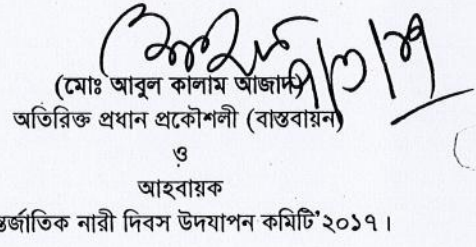 (মোঃ আবুল কালাম আজাদ)
অতিরিক্ত প্রধান প্রকৌশলী (বাস্তবায়ন)
ও
আহবায়ক
র্জাতিক নারী দিবস উদযাপন কমিটি'২০১৭।